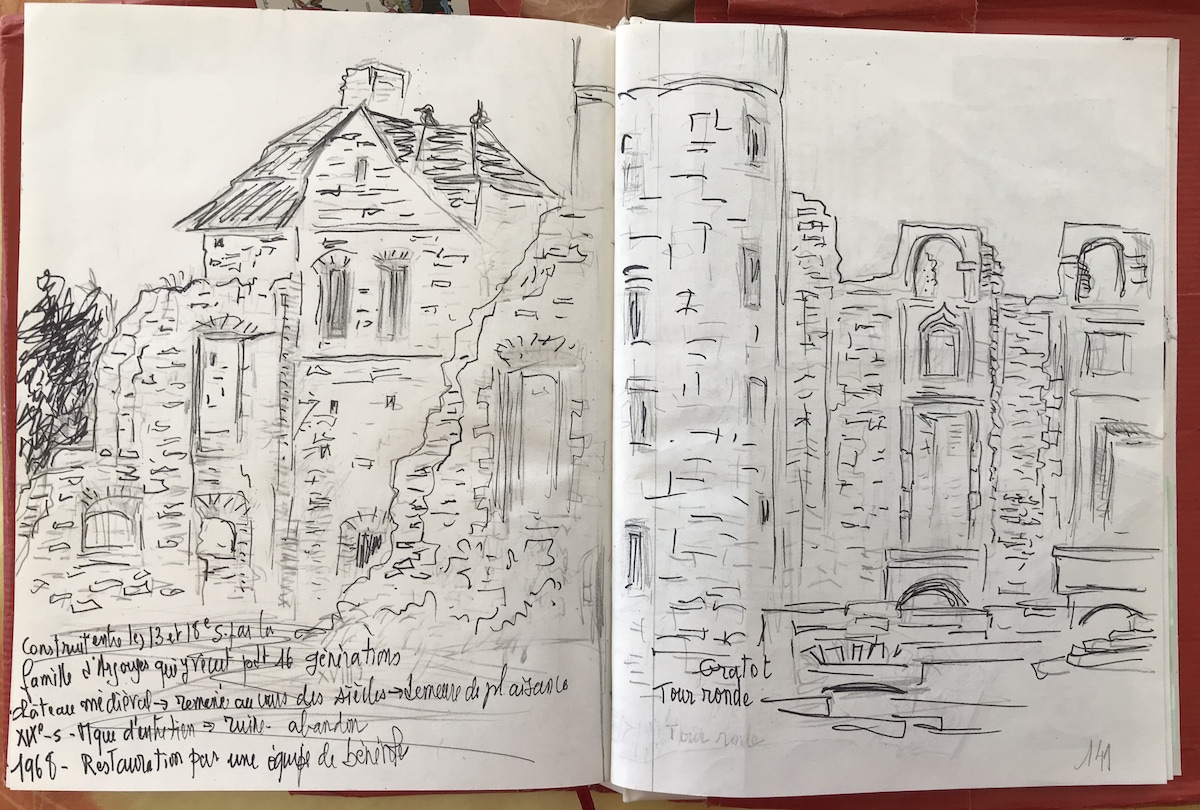 Construit entre les 13 et 18e s. par la
famille d'Argouges qui y vécut pdt 16 générations
XVIII
Château médiéval → remanié au cours des siècles → demeure de plaisance
XIXe s - Mque d'entretien → ruine - abandon
1968 - Restauration par une équipe de bénévole
Gratot
Tour ronde
Tour ronde
141